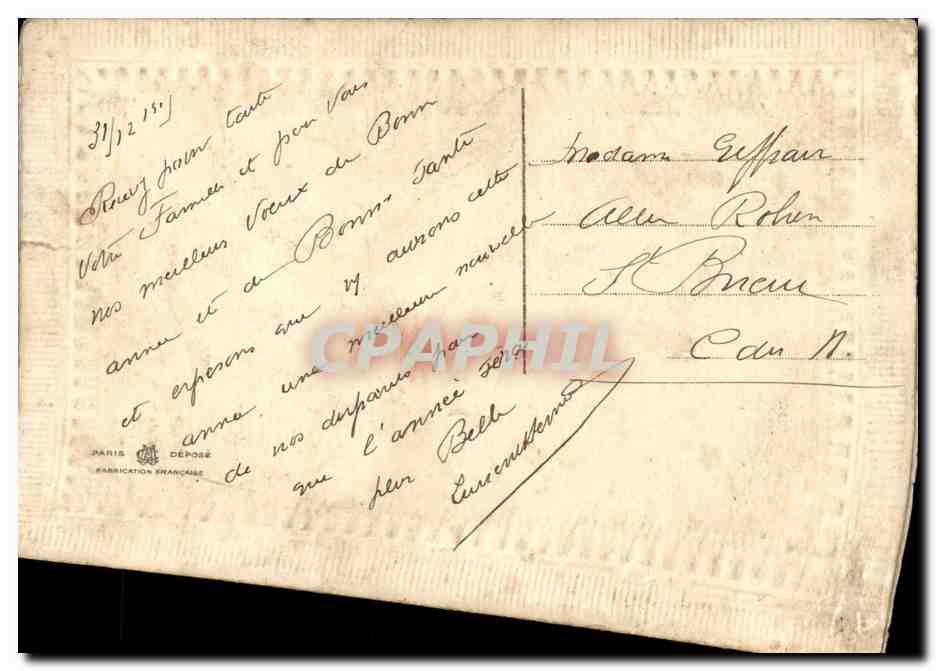 31/12 15
Recevez pour toute
Votre Famille et pour Vous
nos meilleurs Voeux de Bonn
année et de Bonne Santé
et esperons que ny aurons cette
anné une meilleure nouvelle
de nos disparus par
que l'année sera
plus Belle
Madame
Allee Rohen
St Brieuc
C du N.
PARIS DÉPOSÉ
FABRICATION FRANÇAISE
CPAPHIL